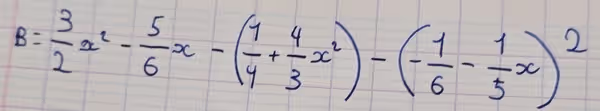 B = \frac{3}{2}x^2 - \frac{5}{6}x - \left(\frac{1}{4} + \frac{4}{3}x^2\right) - \left(-\frac{1}{6} - \frac{1}{5}x\right)^2